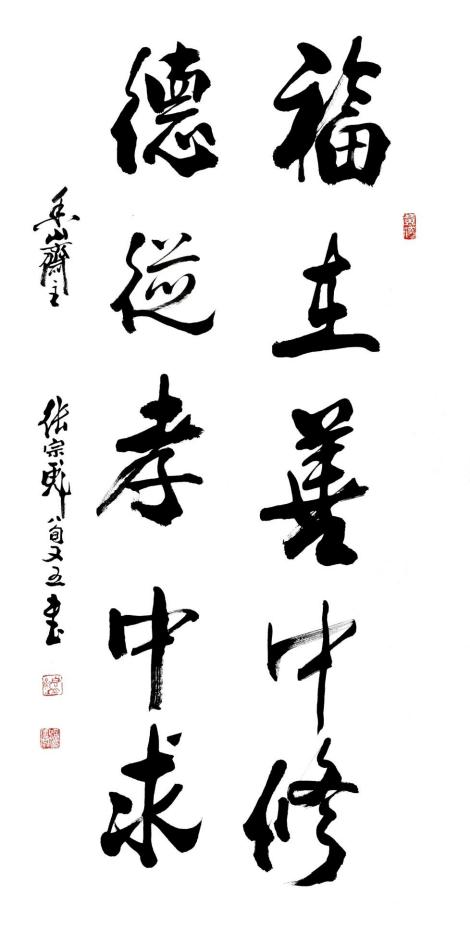 福在善中修
德從孝中求
山齋主
張宗 八旬又五書